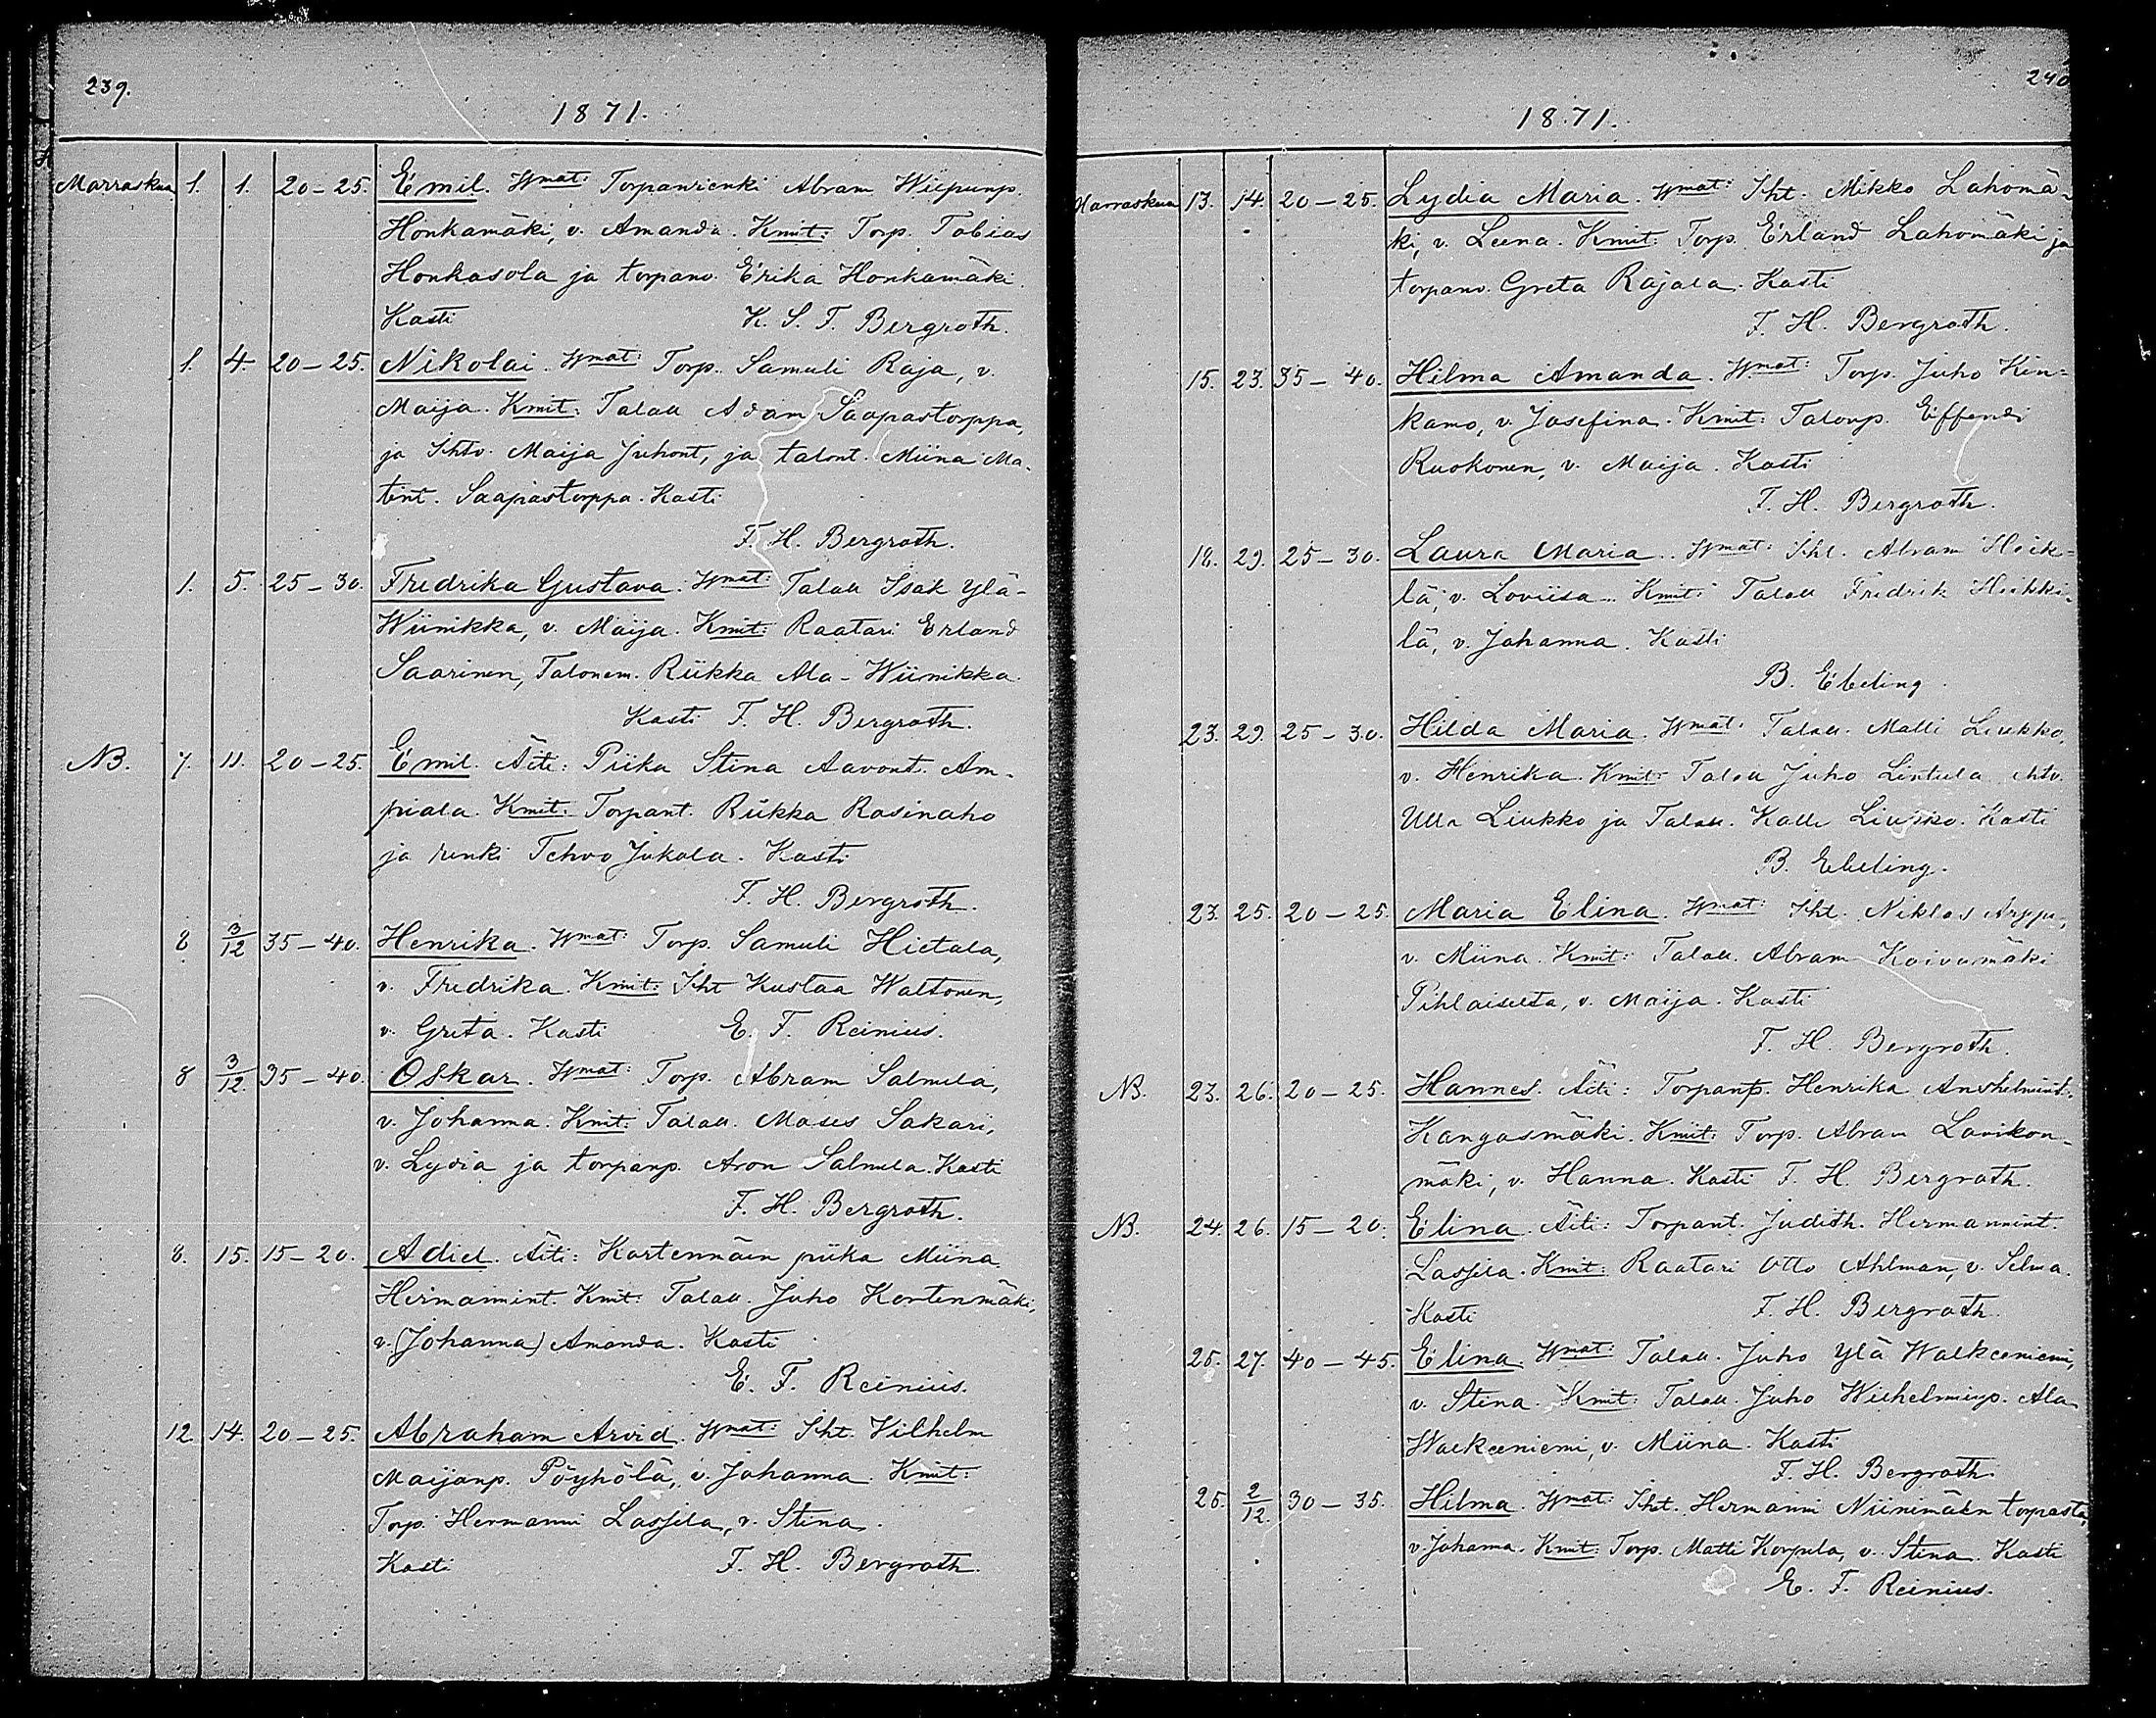 239.
1871.
Marraskuu 1. 1. 20-25. Emil. Wmat: Torpanrenki Abram Wiepunp.
Honkamäki, v. Amanda. Kmit: Torp. Tobias
Honkasola ja torpanv. Erika Honkamäki.
Kasti K. S. T. Bergroth.
1. 4. 20-25. Nikolai. Wmat: Torp. Samuli Raja, v.
Maija. Kmit: Talall Adam Saapastorppa,
ja Ihtv. Maija Juhont, ja talont. Miina Ma-
tint. Saapastorppa. Kasti
F. H. Bergroth.
1. 5. 25-30. Fredrika Gustava. Wmat: Talall Isak Ylä-
Wiinikka, v. Maija. Kmit: Raatari Erland
Saarinen, Talonem. Riikka Ala-Wiinikka.
Kasti F. H. Bergroth.
NB. 7. 11. 20-25. Emil. Äiti: Piika Stina Aavont. Am-
piala. Kmit: Torpant. Riikka Rasinaho
ja renki Tehvo Jukola. Kasti
F. H. Bergroth.
8 3/12 35-40. Henrika. Wmat: Torp. Samuli Hietala,
v. Fredrika. Kmit: Iht Kustaa Waltonen,
v. Greta. Kasti E. F. Reinius.
8 3/12. 35-40. Oskar. Wmat: Torp. Abram Salmela,
v. Johanna. Kmit: Talall. Moses Sakari,
v. Lydia ja torpanp. Aron Salmela. Kasti
F. H. Bergroth.
8. 15. 15-20. Adiel. Äiti: Kortenmäen piika Miina
Hermannint. Kmit: Talall. Juho Kortenmäki,
v. (Johanna) Amanda. Kasti
E. F. Reinius.
12. 14. 20-25. Abraham Arvid. Wmat: Iht. Vilhelm
Maijanp. Pöyhölä, v. Johanna. Kmit:
Torp. Hermanni Lassila, v. Stina.
Kasti F. H. Bergroth.
240
1871.
Marraskuu 13. 14. 20-25. Lydia Maria. Wmat: Iht. Mikko Lahomä-
ki, v. Leena. Kmit: Torp. Erland Lahomäki ja
torpanv. Greta Rajala. Kasti
F. H. Bergroth.
15. 23. 35-40. Hilma Amanda. Wmat: Torp. Juho Kin-
kamo, v. Josefina. Kmit: Talonp. Effendi
Ruokonen, v. Maija. Kasti
F. H. Bergroth.
18. 29. 25-30. Laura Maria. Wmat: Iht. Abram Heik-
lä, v. Loviisa. Kmit: Talall Fredrik Heikki-
lä, v. Johanna. Kasti
B. Ebeling.
23. 29. 25-30. Hilda Maria. Wmat: Talall. Matti Liukko,
v. Henrika. Kmit: Talall Juho Lintula ihtv.
Ulla Liukko ja Talall. Kalle Liukko. Kasti
B. Ebeling.
23. 25. 20-25. Maria Elina. Wmat: Iht. Niklas Arppe,
v. Miina. Kmit: Talall. Abram Koivumäki
Pihlaiselta, v. Maija. Kasti
F. H. Bergroth.
NB. 23. 26. 20-25. Hannes. Äiti: Torpanp. Henrika Anshelmint.
Kangasmäki. Kmit: Torp. Abram Lavikon-
mäki, v. Hanna. Kasti F. H. Bergroth.
NB. 24. 26. 15-20. Elina. Äiti: Torpant. Judith. Hermannint.
Lassila. Kmit: Raatari Otto Ahlman, v. Selma.
Kasti F. H. Bergroth.
25. 27. 40-45. Elina. Wmat: Talall. Juho Ylä Walkeeniemi,
v. Stina. Kmit: Talall. Juho Wilhelminp. Ala
Walkeeniemi, v. Miina. Kasti
F. H. Bergroth.
25. 2/12. 30-35. Hilma. Wmat: Iht. Hermanni Niinimäen torpasta,
v. Johanna. Kmit: Torp. Matti Korpula, v. Stina. Kasti
E. F. Reinius.